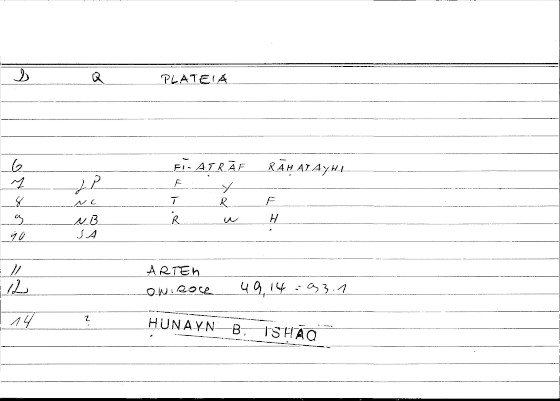 b Q PLATEIA
6 FĪ-AṬRĀF RĀḤATAYHI
7 JP F Y
8 NC Ṭ R F
9 NB R W Ḥ
10 SA
11 ARTEM
12 ONIROCR 49,14 = 93.1
14 ? HUNAYN B. ISHĀQ